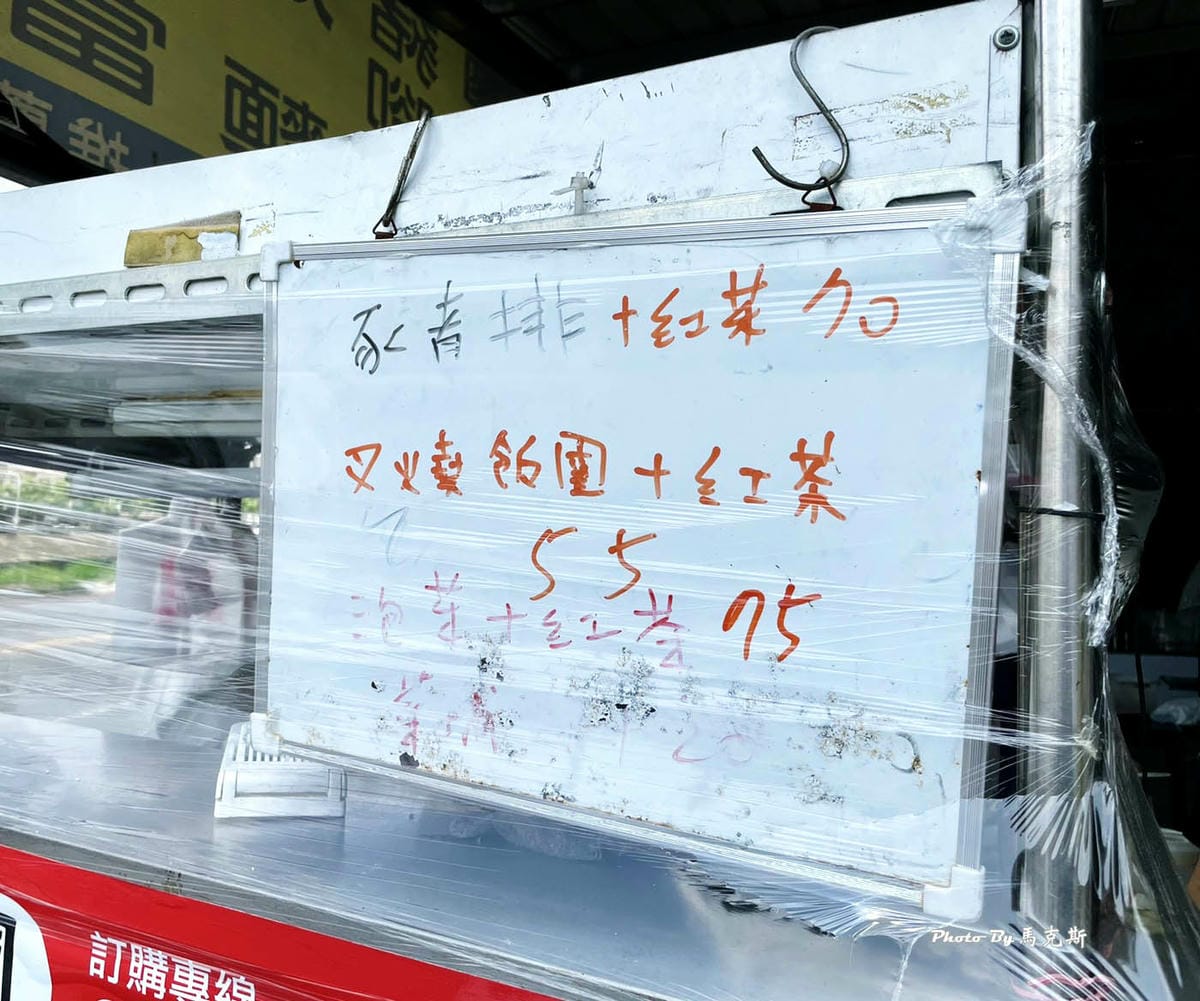 豬排+紅茶 70
叉燒飯團+紅茶
55
泡菜+紅茶 75
訂購專線
Photo By 馬克斯